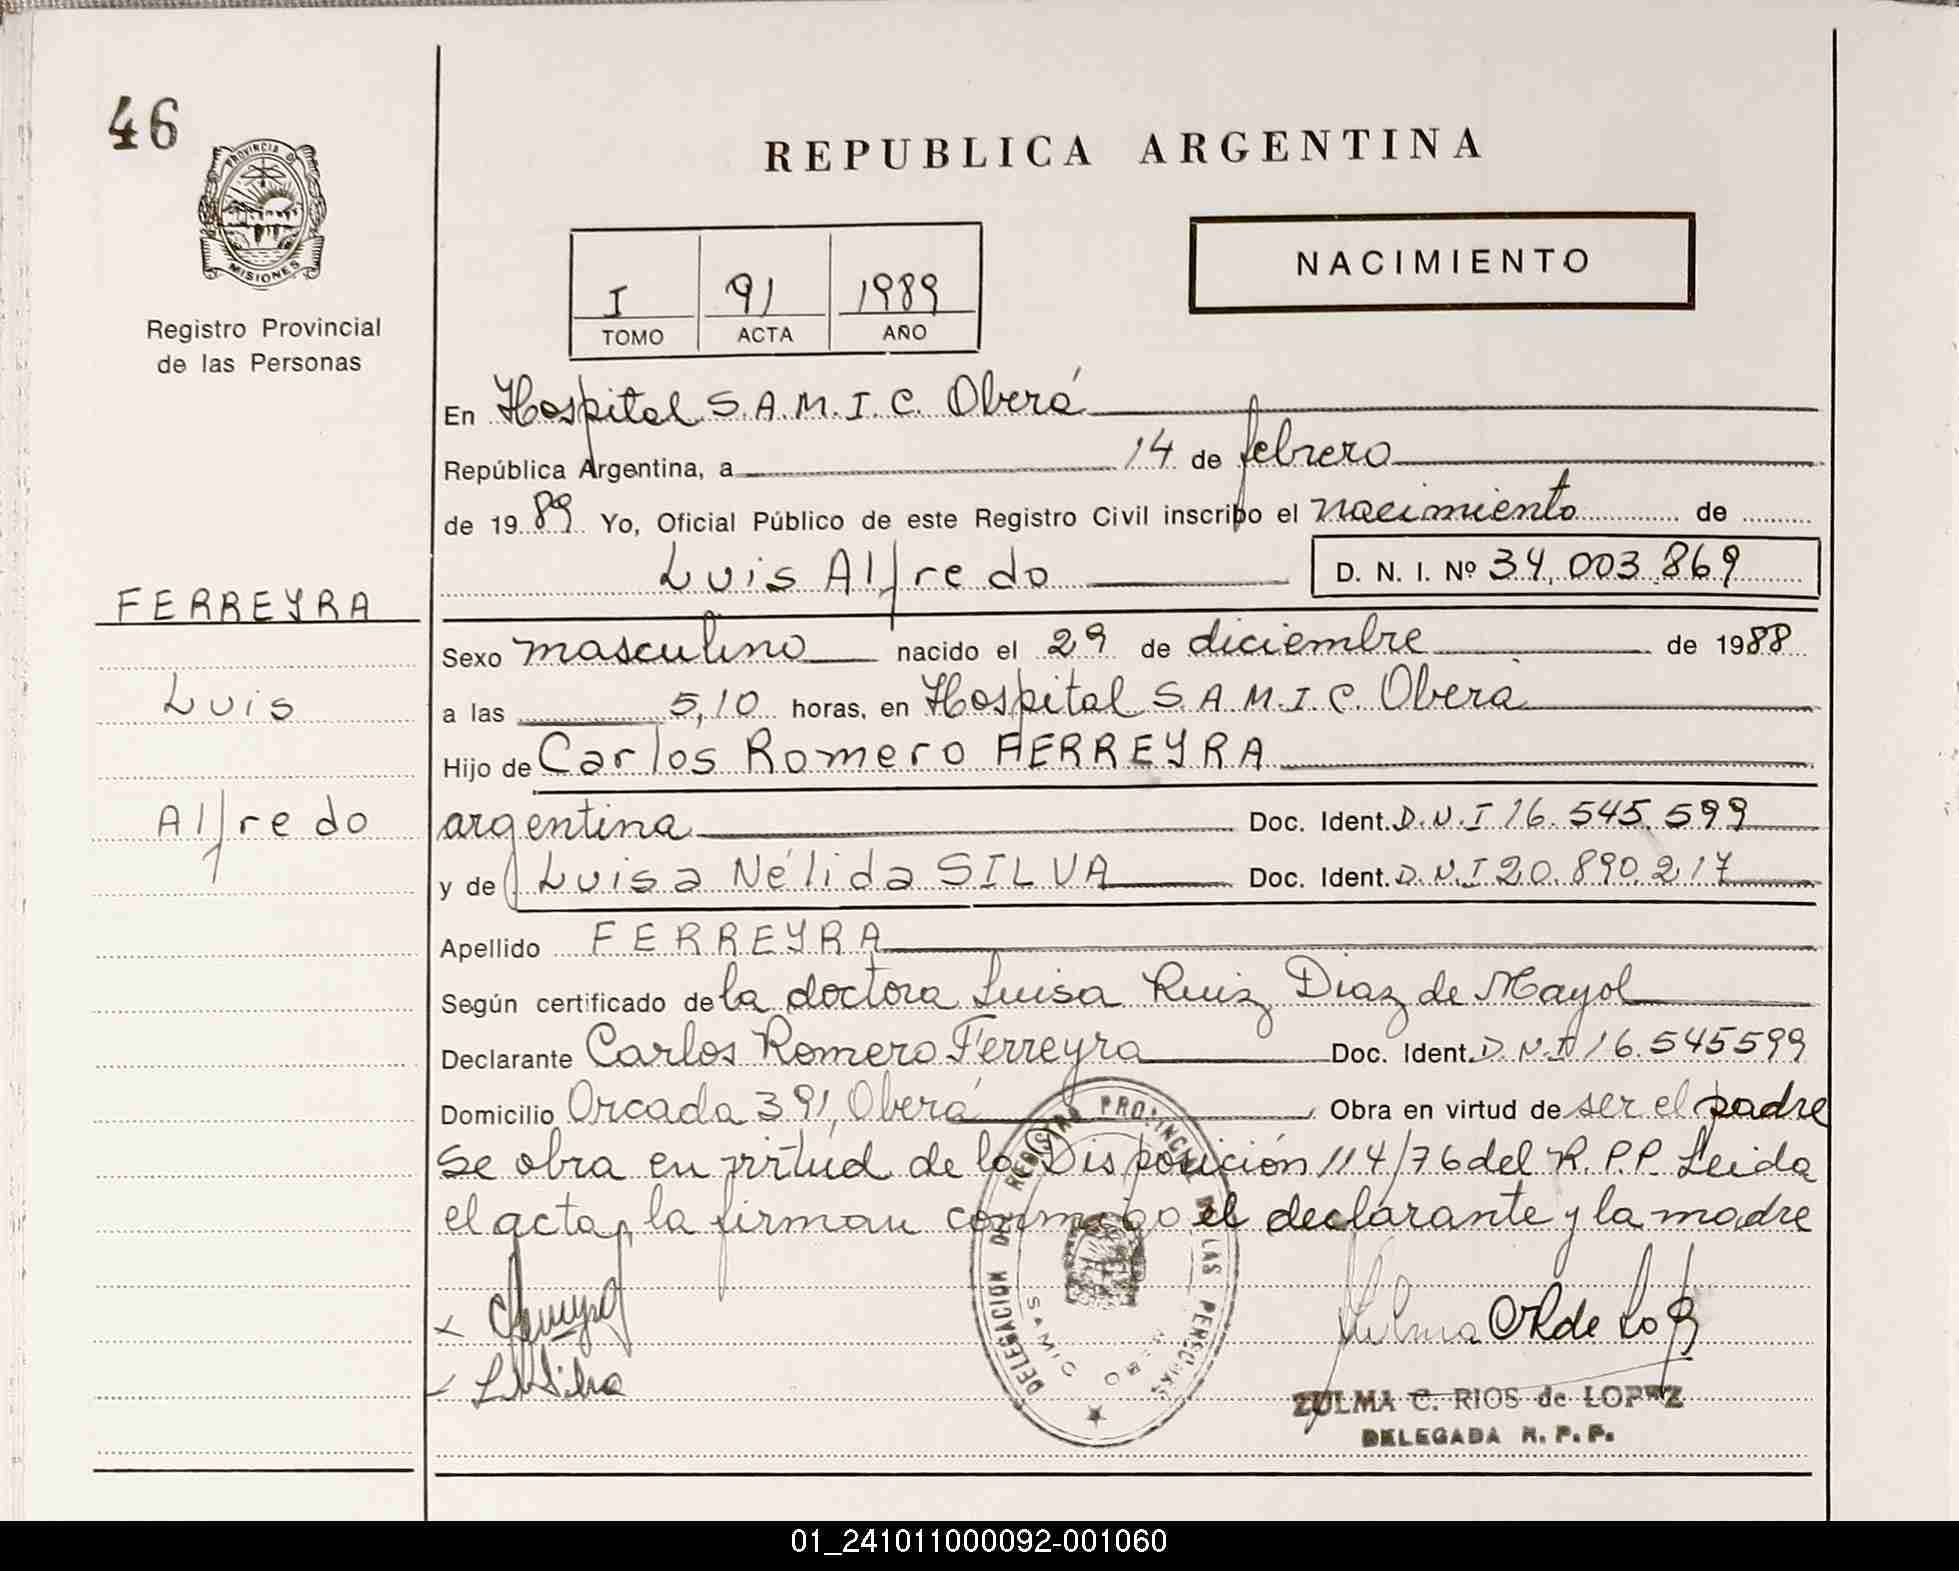 46
PROVINCIA D
MISIONES
Registro Provincial
de las Personas
REPUBLICA ARGENTINA
I 91 1989
TOMO ACTA AÑO
NACIMIENTO
En Hospital S.A.M.I.C. Oberá
República Argentina, a 14 de febrero
de 1989 Yo, Oficial Público de este Registro Civil inscribo el nacimiento de
Luis Alfredo D. N. I. Nº 34,003.869
FERREYRA
Luis
Alfredo
Sexo masculino nacido el 29 de diciembre de 1988
a las 5,10 horas, en Hospital S.A.M.I.C. Oberá
Hijo de Carlos Romero FERREYRA
argentina Doc. Ident. D.N.I 16.545.599
y de Luisa Nélida SILVA Doc. Ident. D.N.I 20.890.217
Apellido FERREYRA
Según certificado de la doctora Luisa Ruiz Diaz de Mayol
Declarante Carlos Romero Ferreyra Doc. Ident. D.N.I 16.545599
Domicilio Orcada 391, Oberá Obra en virtud de ser el padre
Se obra en virtud de la Disposición 114/76 del R.P.P. Leida
el acta, la firman conmigo el declarante y la madre
DELEGACION DEL REGISTRO PROVINCIAL DE LAS PERSONAS
SAMIC
L N Silva
ZULMA C. RIOS de LOPEZ
DELEGADA R. P. P.
01_241011000092-001060